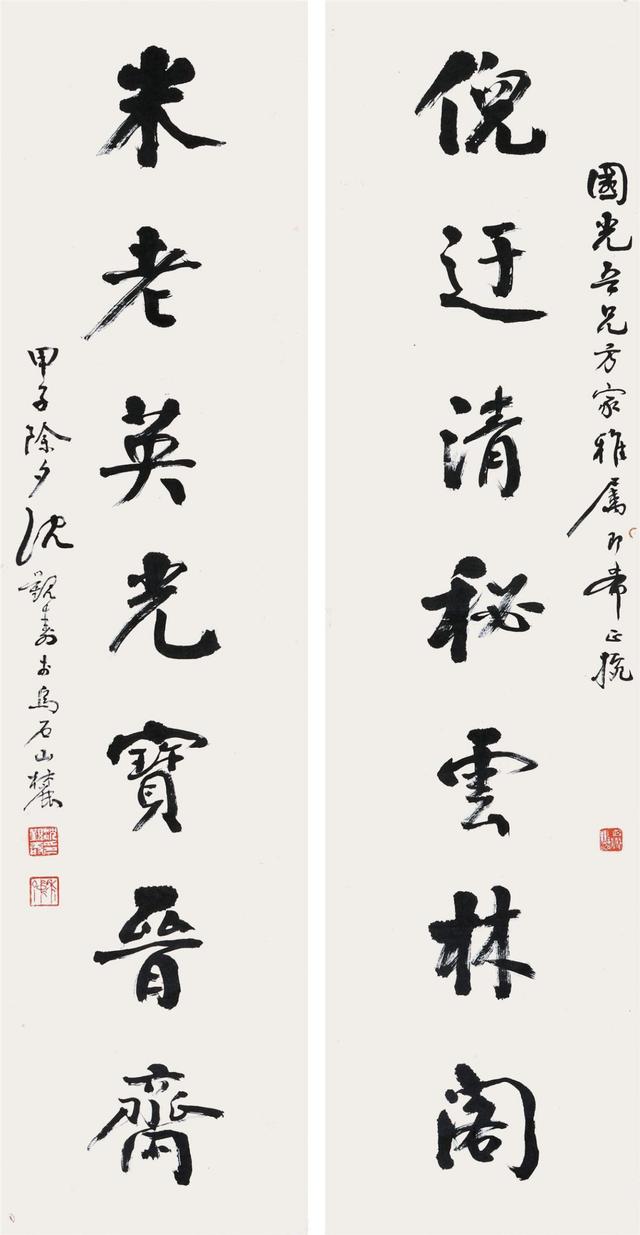 國光吾兄方家雅属即希正捥
倪迂清秘雲林閣
米老英光寶晉齋
甲子除夕沈覲壽於烏石山麓